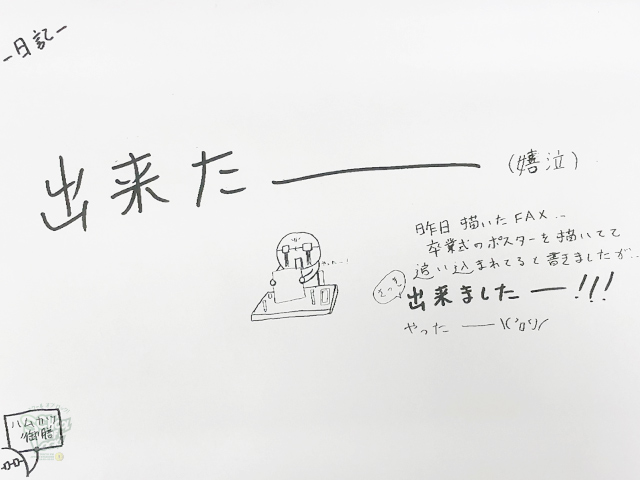 -日記-
出来たーーー (嬉泣)
昨日描いたFAX...
卒業式のポスターを描いてて
追い込まれてると書きましたが...
さっき
出来ましたー!!!
やったー
ハムカツ
御膳